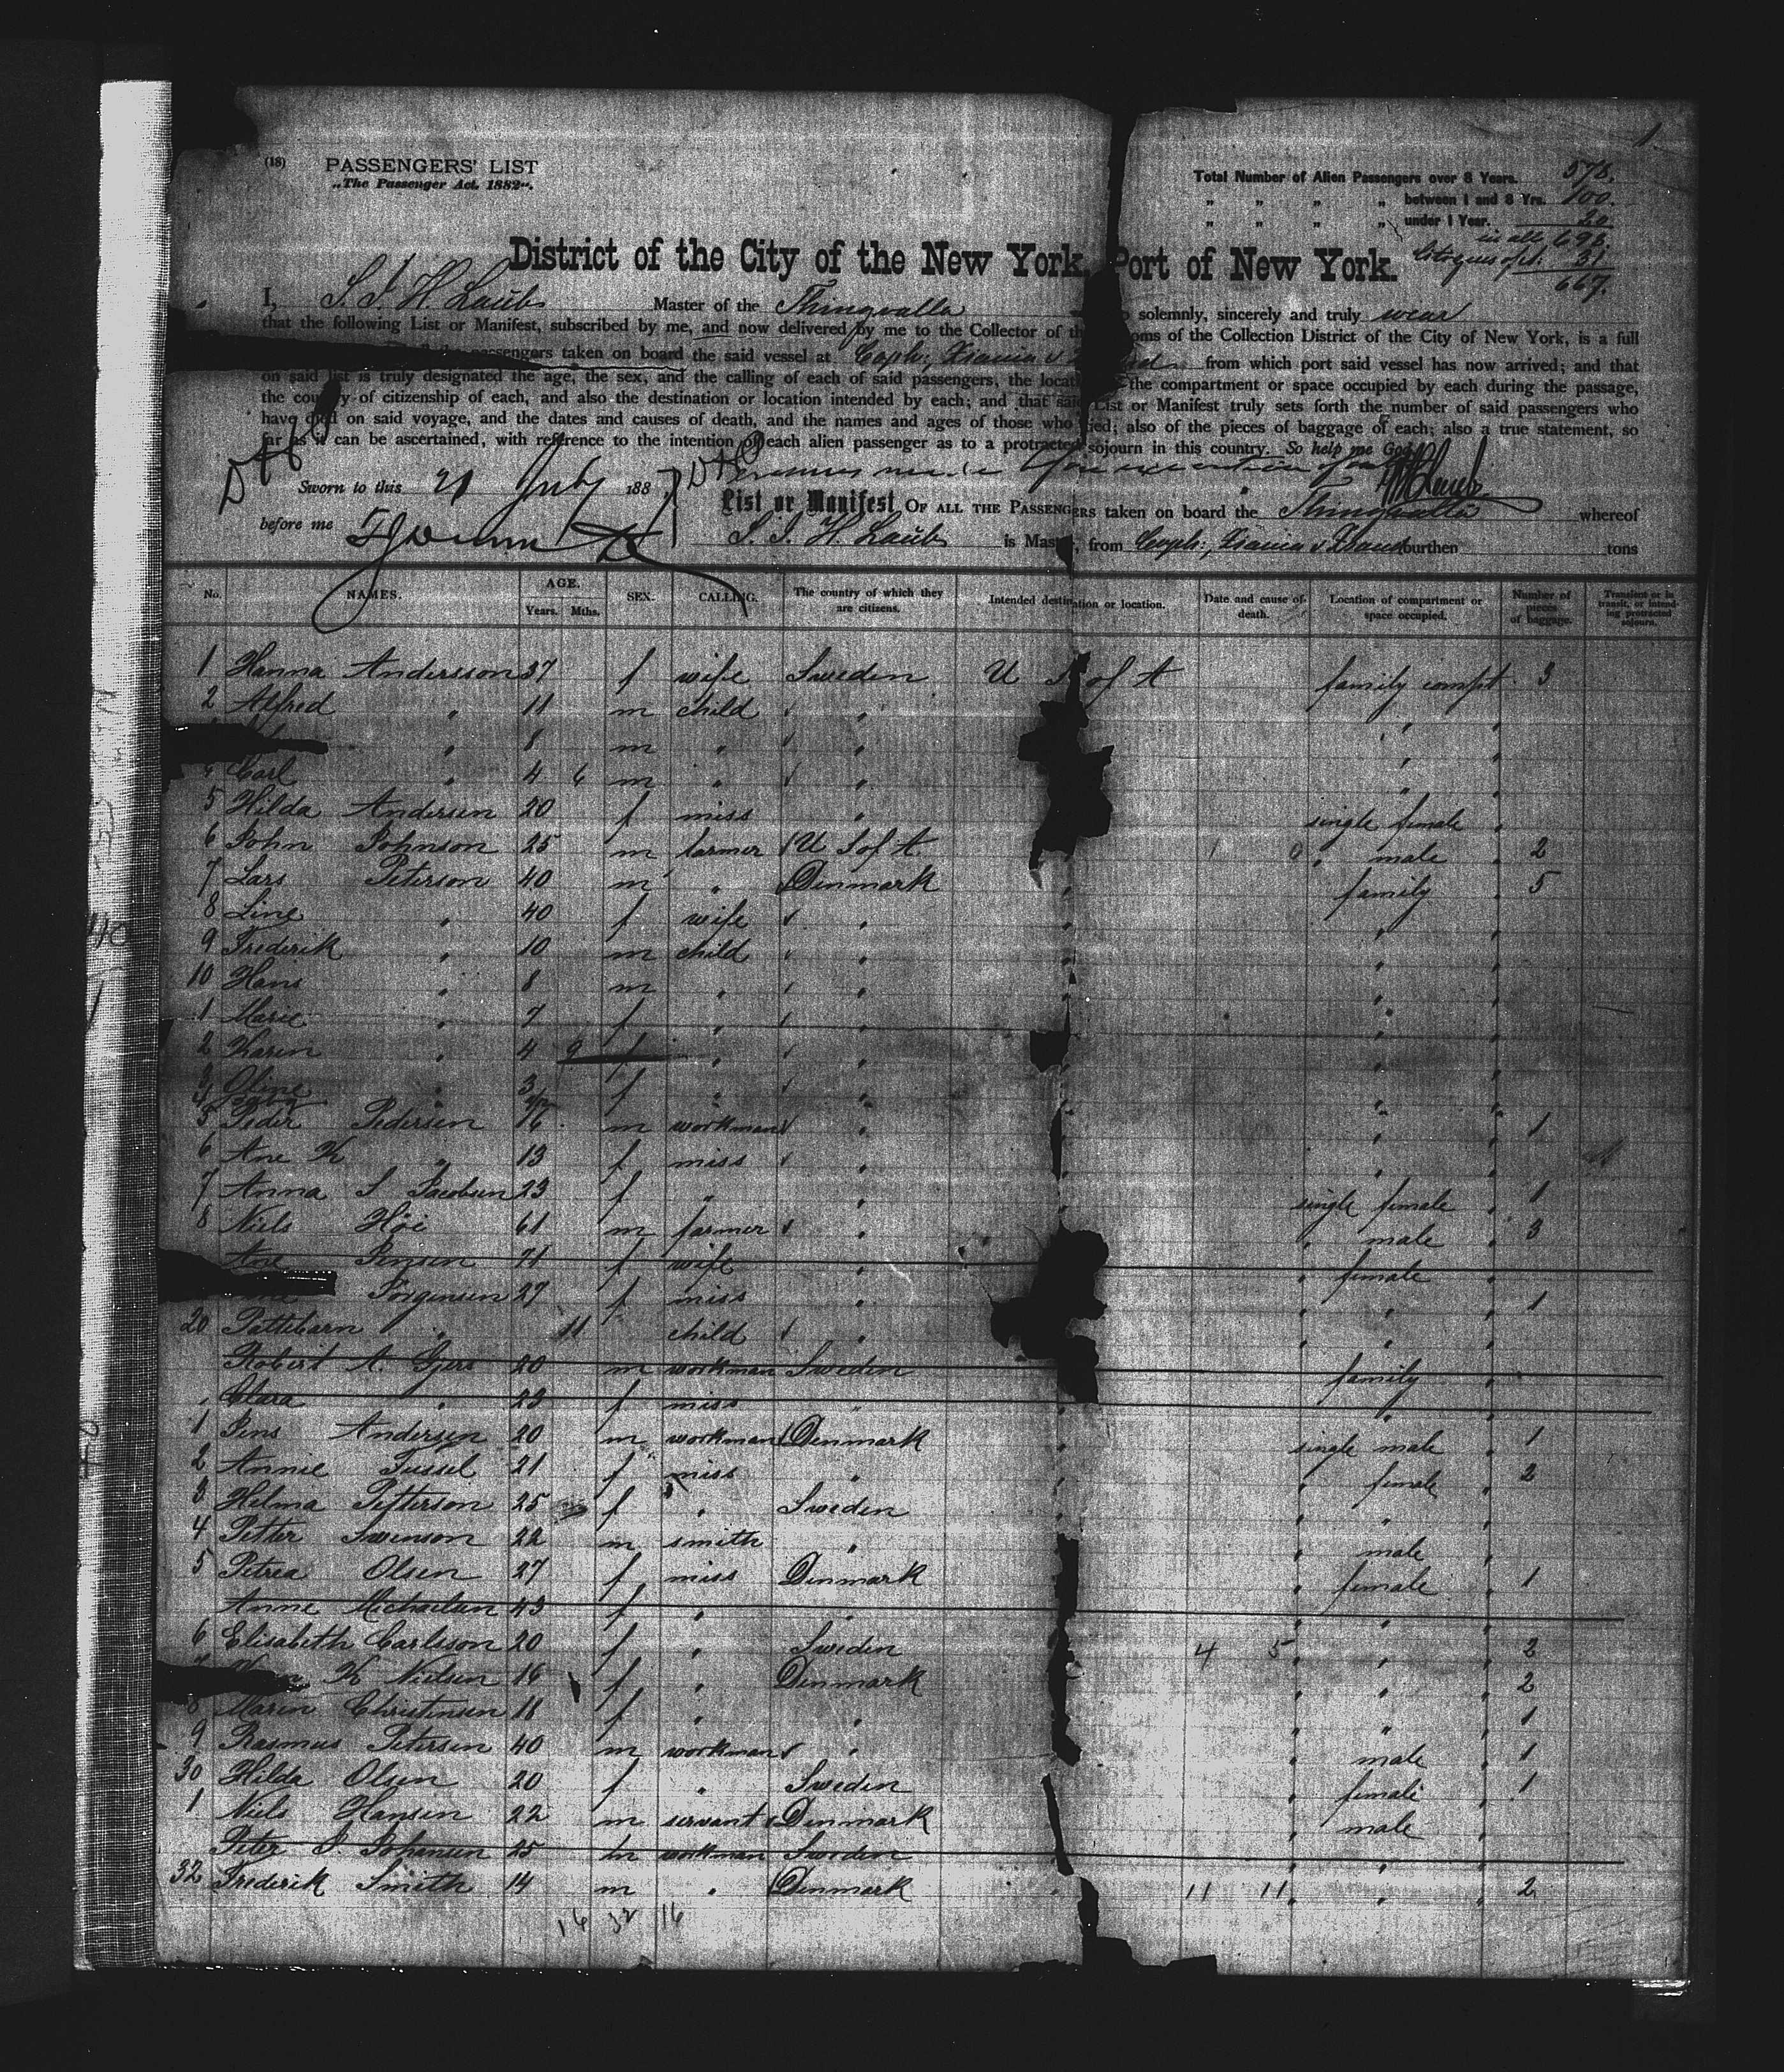 1
(18) PASSENGERS' LIST
„The Passenger Act, 1882“.
Total Number of Alien Passengers over 8 Years. 578.
„ „ „ „ between 1 and 8 Yrs. 100.
„ „ „ „ under 1 Year. 20
in all 698.
31
667.
District of the City of the New York, Port of New York.
I, S. J. H. Laub Master of the Thingvalla solemnly, sincerely and truly swear
that the following List or Manifest, subscribed by me, and now delivered by me to the Collector of the oms of the Collection District of the City of New York, is a full
passengers taken on board the said vessel at Coph: from which port said vessel has now arrived; and that
on said list is truly designated the age, the sex, and the calling of each of said passengers, the locati the compartment or space occupied by each during the passage,
the country of citizenship of each, and also the destination or location intended by each; and that said List or Manifest truly sets forth the number of said passengers who
have died on said voyage, and the dates and causes of death, and the names and ages of those who died; also of the pieces of baggage of each; also a true statement, so
far as it can be ascertained, with reference to the intention of each alien passenger as to a protracted sojourn in this country. So help me God
Sworn to this 21 July 188
before me
List or Manifest OF ALL THE PASSENGERS taken on board the Thingvalla whereof
S. J. H. Laub is Master, from Coph: burthen tons
No. NAMES. AGE. Years. Mths. SEX. CALLING. The country of which they are citizens. Intended destination or location. Date and cause of death. Location of compartment or space occupied. Number of pieces of baggage. Transient or in transit, or intending protracted sojourn.
1 Hanna Andersson 37 f wife Sweden U S of A family compt 3
2 Alfred „ 11 m child „ „ „
„ 8 m „ „ „ „
4 Carl „ 4 6 m „ „ „ „
5 Hilda Andersen 20 f miss „ single female „
6 John Johnson 25 m farmer U S of A „ male „ 2
7 Lars Peterson 40 m „ Denmark „ family 5
8 Line „ 40 f wife „ „ „ „
9 Frederik „ 10 m child „ „ „ „
10 Hans „ 8 m „ „ „ „ „
1 Marie „ 7 f „ „ „ „
2 Karen „ 4 9 f „ „ „ „
3 Oline „ 3 f „ „ „ „
4
5 Peder Pedersen 16 m workman „ „ „ „ 1
6 Ane K „ 13 f miss „ „ „ „
7 Anna S Jacobsen 23 f „ „ „ single female „ 1
8 Niels Höi 61 m farmer „ „ „ male „ 3
Ane Jensen 71 f wife „ „ female „
Jörgensen 27 f miss „ „ „ „ 1
20 Pattebarn „ 11 child „ „ „ „
Robert A. 20 m workman Sweden family „
„ Clara „ 23 f miss „ „ „ „
1 Jens Andersen 20 m workman Denmark „ single male „ 1
2 Annie Tussel 21 f miss „ „ female „ 2
3 Helma Petterson 25 f „ Sweden „ „ „ „
4 Petter Swenson 22 m smith „ „ male „
5 Petrea Olsen 27 f miss Denmark „ female „ 1
Anne Michaelsen 43 f „ „ „ „ „
6 Elisabeth Carlsson 20 f „ Sweden 4 5 „ „ „ 2
7 K Nielsen 16 f „ Denmark „ „ „ 2
8 Maren Christensen 18 f „ „ „ „ „ 1
9 Rasmus Petersen 40 m workman „ „ male „ 1
30 Hilda Olsen 20 f „ Sweden „ female „ 1
1 Niels Hansen 22 m servant Denmark „ male „
Peter J. Johansen 25 m workman Sweden „ „ „
32 Frederik Smith 14 m „ Denmark „ 11 11 „ „ „ 2
16 32 16